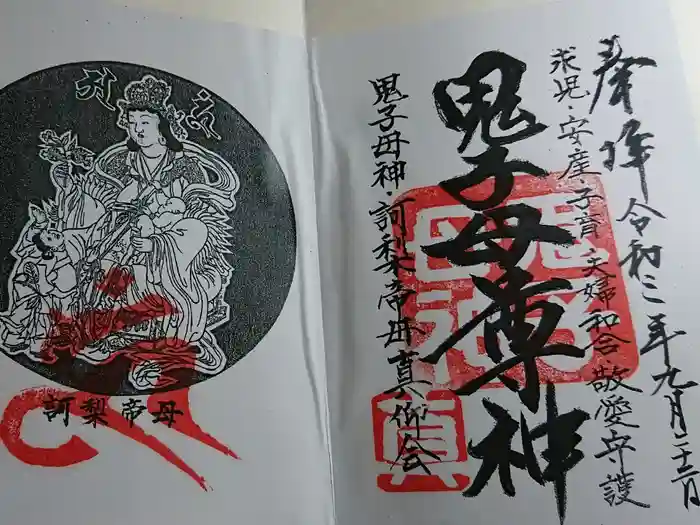 奉拝 令和三年九月二十二日
求児・安産・子育 夫婦和合・敬愛守護
鬼子母尊神
鬼子母神・訶梨帝母真仰会
鬼子母神
真
訶梨帝母